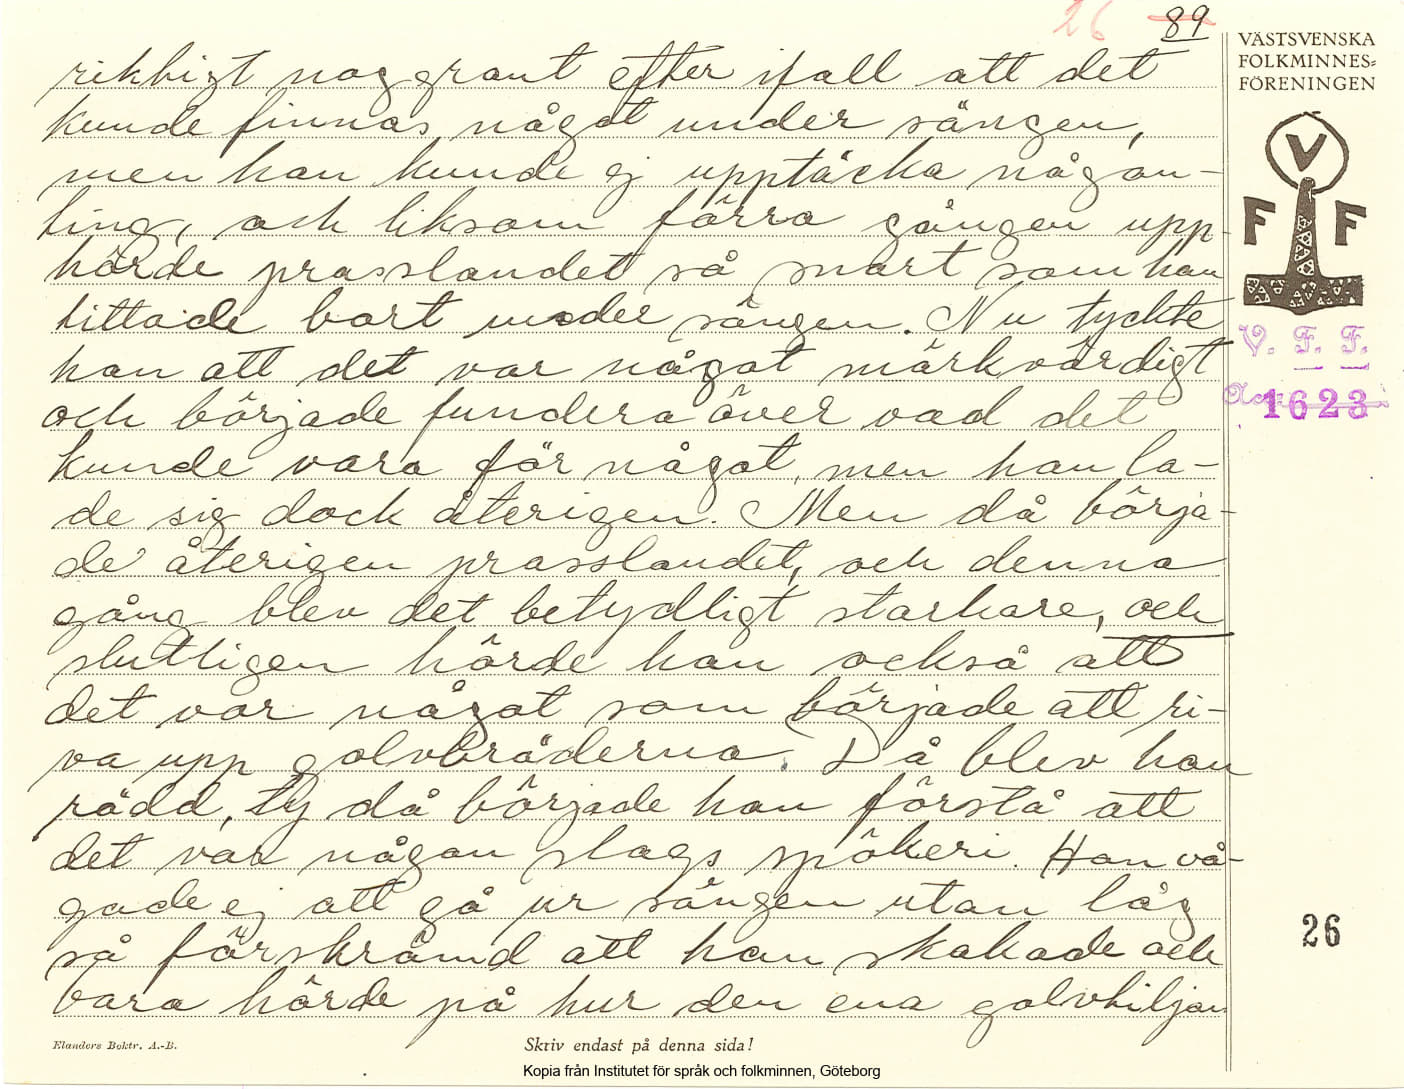 26 89
VÄSTSVENSKA
FOLKMINNES=
FÖRENINGEN
V
F F
V. F. F.
1623
riktigt noggrant efter ifall att det
kunde finnas något under sängen,
men han kunde ej upptäcka någon-
ting, och liksom förra gången upp-
hörde prasslandet så snart som han
tittade bort under sängen. Nu tyckte
han att det var något märkvärdigt
och började fundera över vad det
kunde vara för något, men han la-
de sig dock återigen. Men då börja-
de återigen prasslandet, och denna
gång blev det betydligt starkare, och
slutligen hörde han också att
det var något som började att ri-
va upp golvbräderna. Då blev han
rädd, ty då började han förstå att
det var någon slags spökeri. Han vå-
gade ej att gå ur sängen utan låg
så förskrämd att han skakade och
bara hörde på hur den ena golvtiljan
26
Elanders Boktr. A.-B.
Skriv endast på denna sida!
Kopia från Institutet för språk och folkminnen, Göteborg